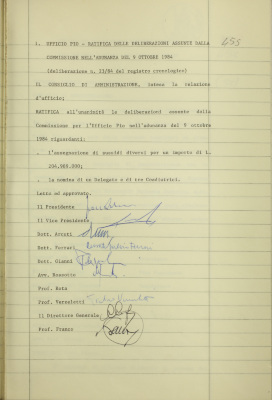 1. UFFICIO PIO - RATIFICA DELLE DELIBERAZIONI ASSUNTE DALLA
COMMISSIONE NELL'ADUNANZA DEL 9 OTTOBRE 1984
(deliberazione n. 23/84 del registro cronologico)
IL CONSIGLIO DI AMMINISTRAZIONE, intesa la relazione
d'ufficio;
RATIFICA all'unanimità le deliberazioni assunte dalla
Commissione per l'Ufficio Pio nell'adunanza del 9 ottobre
1984 riguardanti:
. l'assegnazione di sussidi diversi per un importo di L.
206.989.000;
. la nomina di un Delegato e di tre Condirettori.
Letto ed approvato.
Il Presidente
Il Vice Presidente
Dott.
Dott. Ferrari
Dott. Gianni
Avv.
Prof. Rota
Prof.
Il Direttore Generale
Prof. Franzo